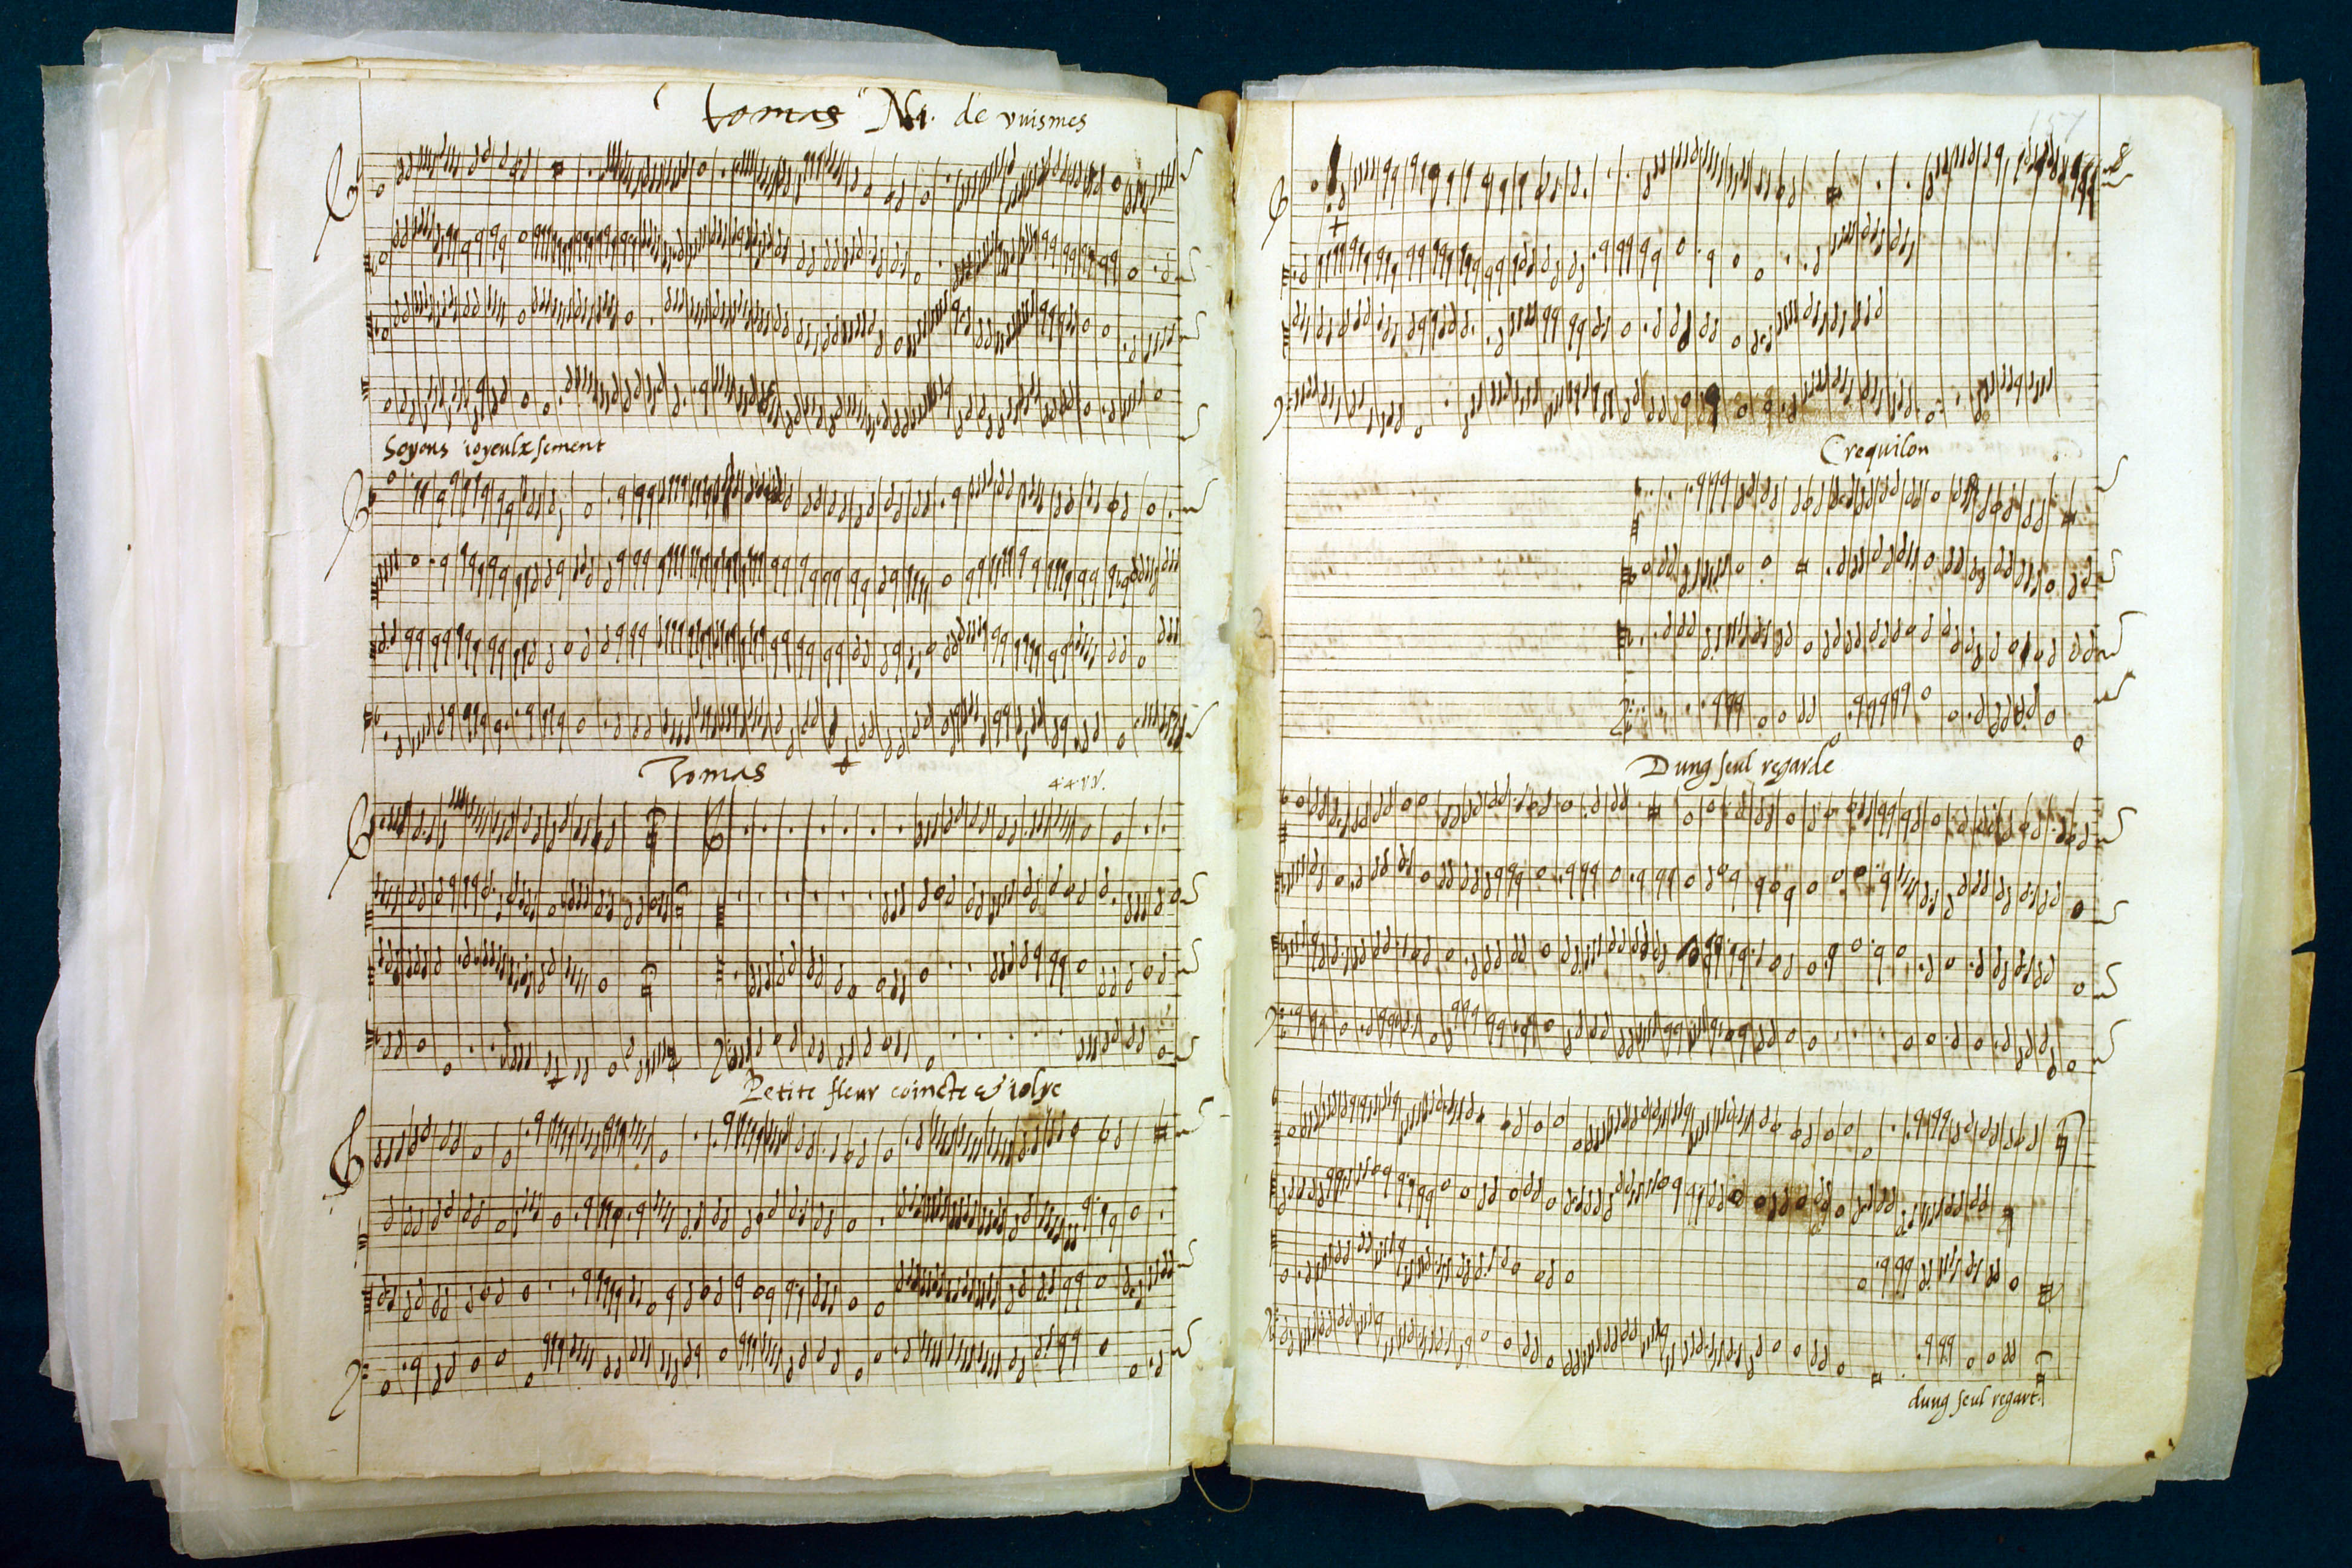 Tomas Ni. de vuismes
Soyons ioyeulxsement
Tomas
Petite fleur coincte et iolye
157
Crequilon
Dung seul regarde
dung seul regart.